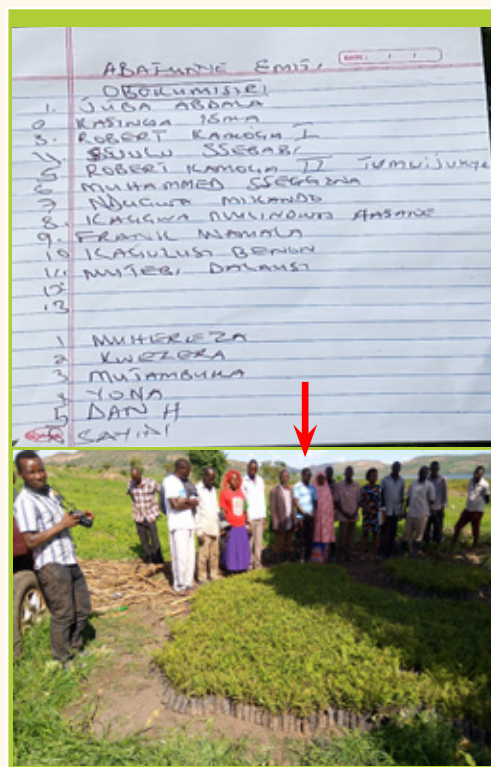 DATE: / /
ABATWALE EMITI
OBOKUMISIRI
1. JUBA ABDALA
2 KASINGA ISMA
3. ROBERT KAMOGA I
4. SSJULU SSEBABI
5 ROBERT KAMOGA II
6 MUHAMMED SSEGGONA
7 NDUGWA MIKANDO
8. KAGGWA
9. FRANK WAMALA
10 KAGULUSI BENON
11. MUTEBI DALAUSI
12
13
1 MUHEREZA
2 KWEZERA
3 MUTAMBUKA
4 YONA
5 DAN H
SAYIDI